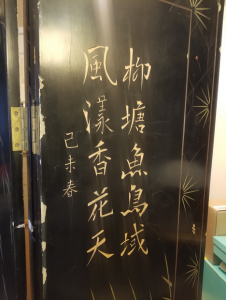 柳塘魚鳥域
風漾香花天
己未春